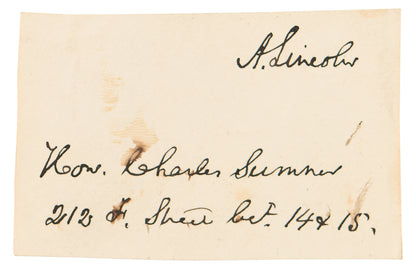 A. Lincoln
Hon. Charles Sumner
212 F. Street bet. 14 & 15.